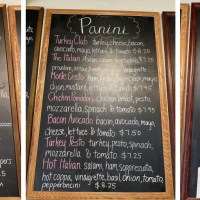 Panini
Turkey Club turkey, cheese, bacon,
avocado, mayo, lettuce & tomato $8.20
The Italian
provolone, vinaigrette
Monte Cristo ham, mayo
dijon, mustard, lettuce & tomato $7.95
Chicken Pomodoro chicken breast, pesto,
mozzarella, spinach & tomato $7.95
Bacon Avocado bacon, avocado, mayo
cheese, lettuce & tomato $7.50
Turkey Pesto turkey, pesto, spinach,
mozzarella & tomato $7.25
Hot Italian salami, ham, soppressata,
hot coppa, vinaigrette, basil, onion, tomato,
pepperoncini $8.25